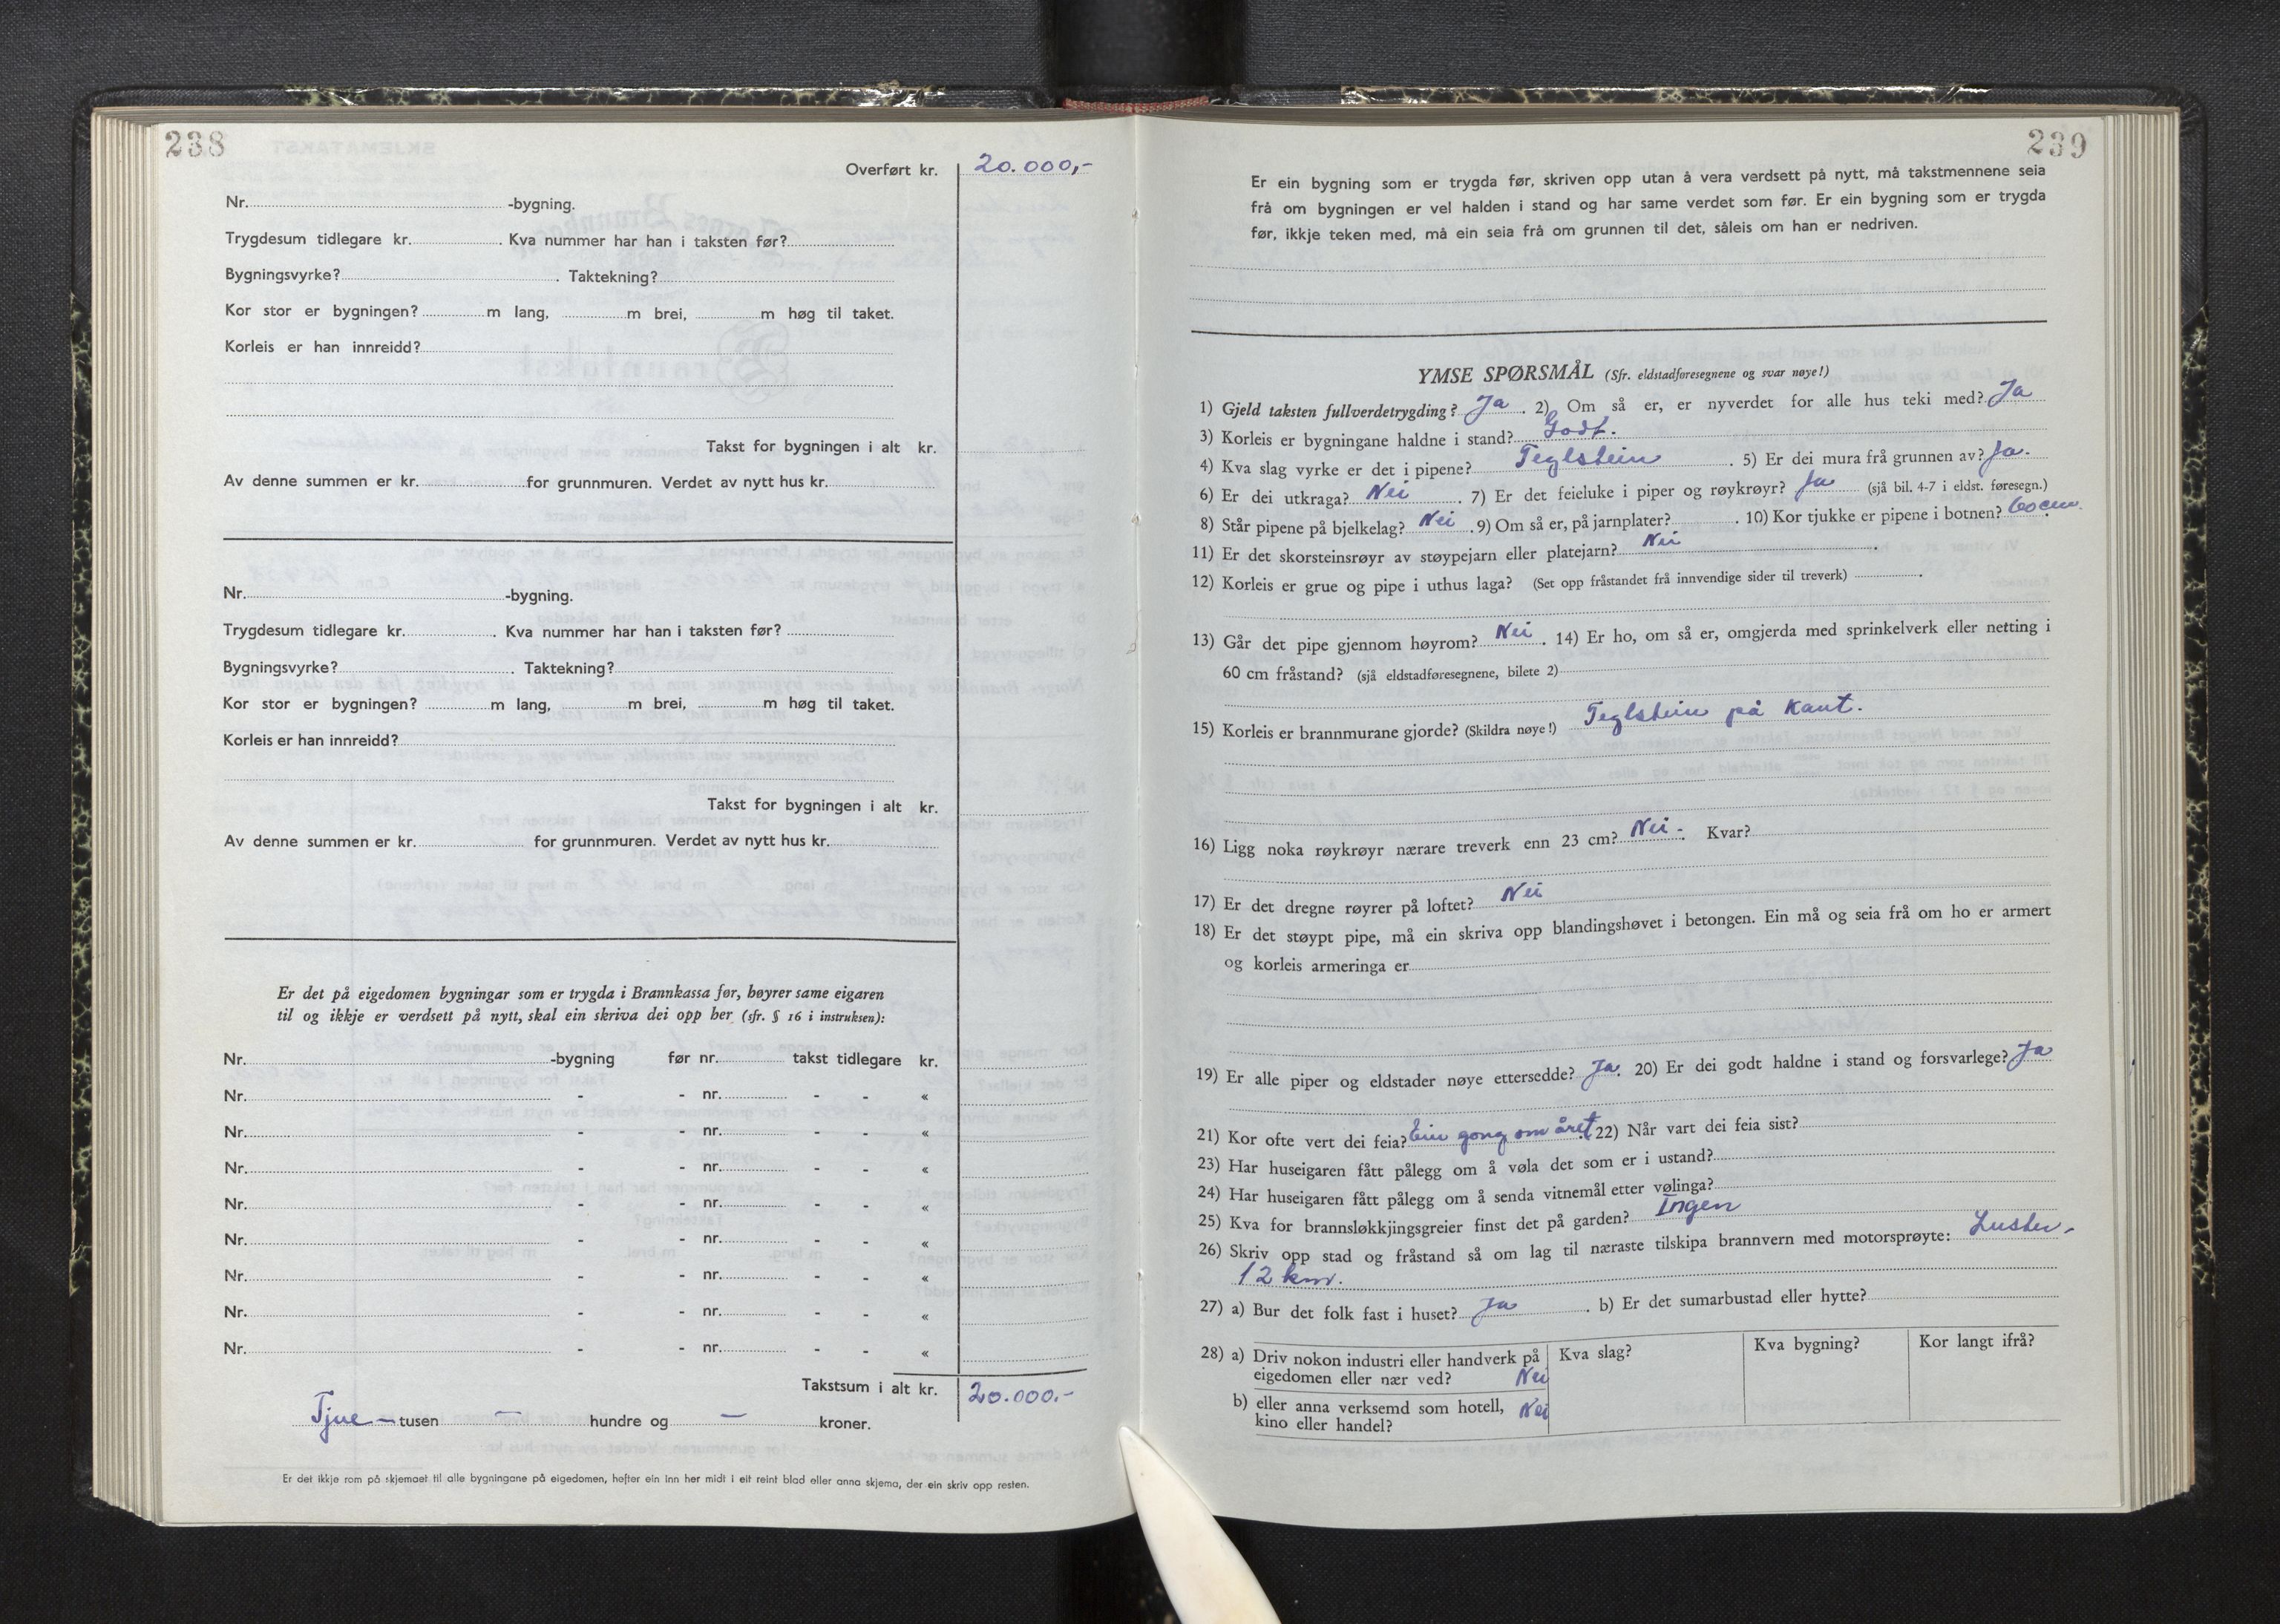 238
Overført kr. 20.000,-
Nr. -bygning.
Trygdesum tidlegare kr. . Kva nummer har han i taksten før?
Bygningsvyrke? . Taktekning?
Kor stor er bygningen? m lang, m brei, m høg til taket.
Korleis er han innreidd?
Takst for bygningen i alt kr.
Av denne summen er kr. for grunnmuren. Verdet av nytt hus kr.
Nr. -bygning.
Trygdesum tidlegare kr. . Kva nummer har han i taksten før?
Bygningsvyrke? . Taktekning?
Kor stor er bygningen? m lang, m brei, m høg til taket.
Korleis er han innreidd?
Takst for bygningen i alt kr.
Av denne summen er kr. for grunnmuren. Verdet av nytt hus kr.
Er det på eigedomen bygningar som er trygda i Brannkassa før, høyrer same eigaren
til og ikkje er verdsett på nytt, skal ein skriva dei opp her (sfr. § 16 i instruksen):
Nr. -bygning før nr. takst tidlegare kr.
Nr. - - nr. - - «
Nr. - - nr. - - «
Nr. - - nr. - - «
Nr. - - nr. - - «
Nr. - - nr. - - «
Nr. - - nr. - - «
Nr. - - nr. - - «
Nr. - - nr. - - «
Takstsum i alt kr. 20.000.-
Tjue - tusen - hundre og - kroner.
Er det ikkje rom på skjemaet til alle bygningane på eigedomen, hefter ein inn her midt i eit reint blad eller anna skjema, der ein skriv opp resten.
239
Er ein bygning som er trygda før, skriven opp utan å vera verdsett på nytt, må takstmennene seia
frå om bygningen er vel halden i stand og har same verdet som før. Er ein bygning som er trygda
før, ikkje teken med, må ein seia frå om grunnen til det, såleis om han er nedriven.
YMSE SPØRSMÅL (Sfr. eldstadføresegnene og svar nøye!)
1) Gjeld taksten fullverdetrygding? Ja. 2) Om så er, er nyverdet for alle hus teki med? Ja
3) Korleis er bygningane haldne i stand? Godt.
4) Kva slag vyrke er det i pipene? Teglstein . 5) Er dei mura frå grunnen av? Ja.
6) Er dei utkraga? Nei . 7) Er det feieluke i piper og røykrøyr? Ja (sjå bil. 4-7 i eldst. føresegn.)
8) Står pipene på bjelkelag? Nei . 9) Om så er, på jarnplater? . 10) Kor tjukke er pipene i botnen? 60 cm.
11) Er det skorsteinsrøyr av støypejarn eller platejarn? Nei .
12) Korleis er grue og pipe i uthus laga? (Set opp fråstandet frå innvendige sider til treverk) .
13) Går det pipe gjennom høyrom? Nei . 14) Er ho, om så er, omgjerda med sprinkelverk eller netting i
60 cm fråstand? (sjå eldstadføresegnene, bilete 2)
15) Korleis er brannmurane gjorde? (Skildra nøye!) Teglstein på kant.
16) Ligg noka røykrøyr nærare treverk enn 23 cm? Nei -. Kvar?
17) Er det dregne røyrer på loftet? Nei
18) Er det støypt pipe, må ein skriva opp blandingshøvet i betongen. Ein må og seia frå om ho er armert
og korleis armeringa er
19) Er alle piper og eldstader nøye ettersedde? Ja. 20) Er dei godt haldne i stand og forsvarlege? Ja
21) Kor ofte vert dei feia? Ein gong om året. 22) Når vart dei feia sist?
23) Har huseigaren fått pålegg om å vøla det som er i ustand?
24) Har huseigaren fått pålegg om å senda vitnemål etter vølinga?
25) Kva for brannsløkkjingsgreier finst det på garden? Ingen
26) Skriv opp stad og fråstand så om lag til næraste tilskipa brannvern med motorsprøyte: Luster-
12 km.
27) a) Bur det folk fast i huset? Ja . b) Er det sumarbustad eller hytte?
28) a) Driv nokon industri eller handverk på
eigedomen eller nær ved? Nei
Kva slag? Kva bygning? Kor langt ifrå?
b) eller anna verksemd som hotell,
kino eller handel? Nei